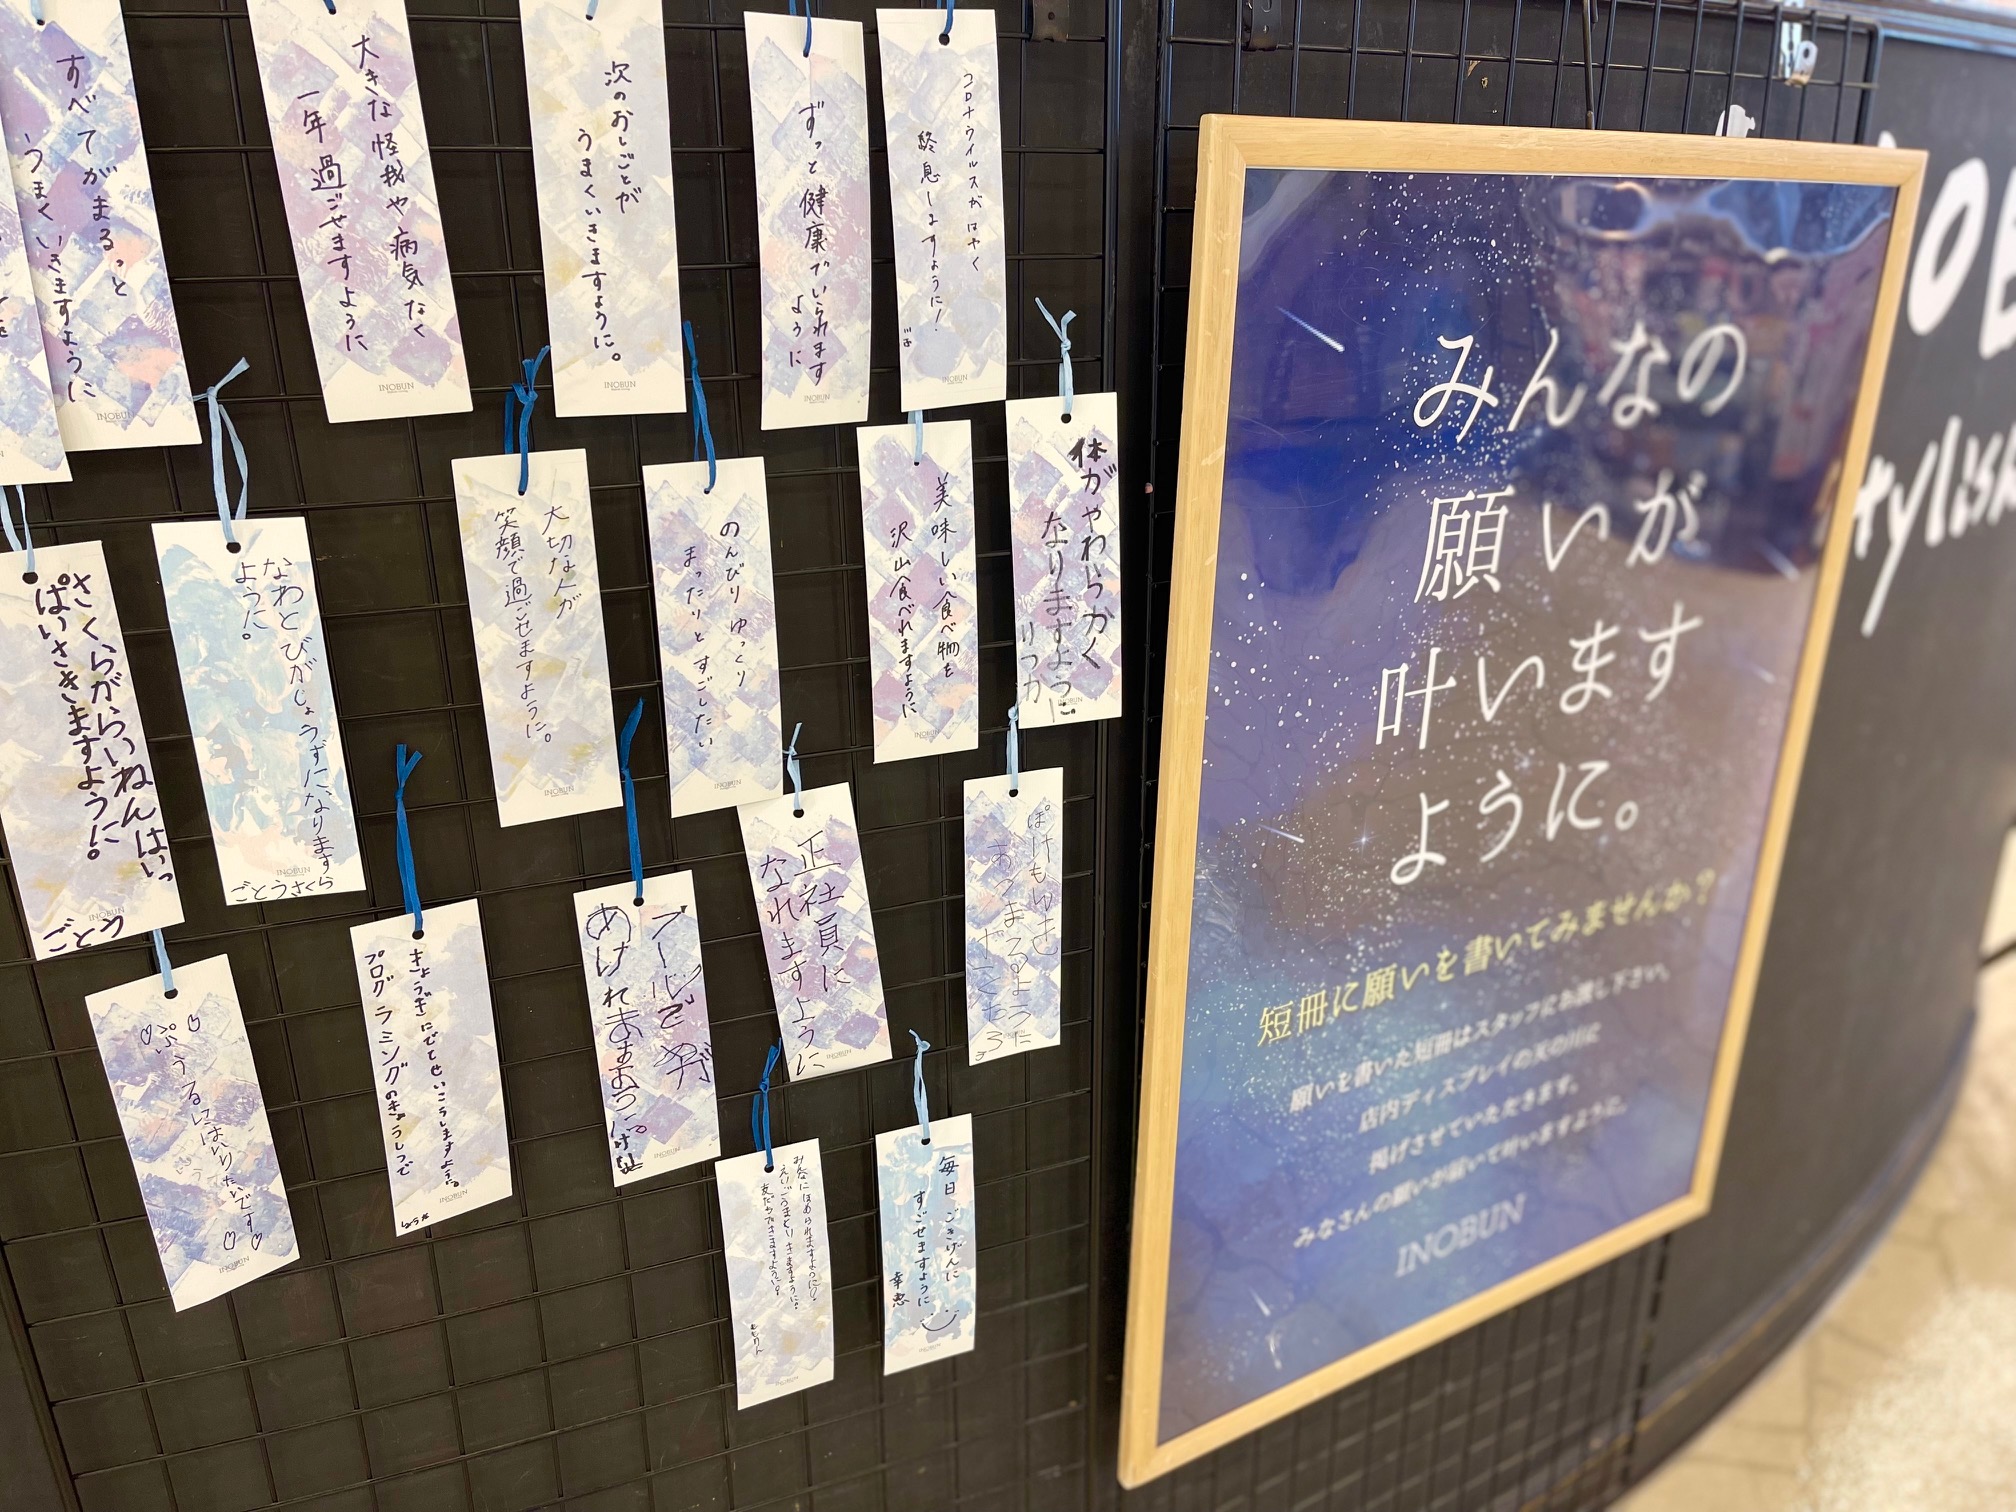 すべてがまるっと
うまくいきますように
INOBUN
大きな怪我や病気なく
一年過ごせますように
INOBUN
次のおしごとが
うまくいきますように。
INOBUN
ずっと健康でいられます
ように
INOBUN
コロナウイルスがはやく
終息しますように!
INOBUN
さくらがらいねんはいっ
ぱいさきますように。
ごとう
INOBUN
なわとびがじょうずになります
ように。
ごとうさくら
INOBUN
大切な人が
笑顔で過ごせますように。
INOBUN
のんびりゆっくり
まったりとすごしたい
INOBUN
美味しい食べ物を
沢山食べれますように
INOBUN
体がやわらかく
なりますように
りつか
INOBUN
ぷうるにはいりたいです
INOBUN
プログラミングのきょうしつで
INOBUN
プールで
あけれますように
INOBUN
正社員に
なれますように
INOBUN
INOBUN
みんなにほめられますように。
えいごうまくいきますように。
友だちできますように。
INOBUN
毎日ごきげんに
すごせますように
幸恵
INOBUN
みんなの
願いが
叶います
ように。
短冊に願いを書いてみませんか?
願いを書いた短冊はスタッフにお渡し下さい。
店内ディスプレイの天の川に
掲げさせていただきます。
みなさんの願いが届いて叶いますように。
INOBUN